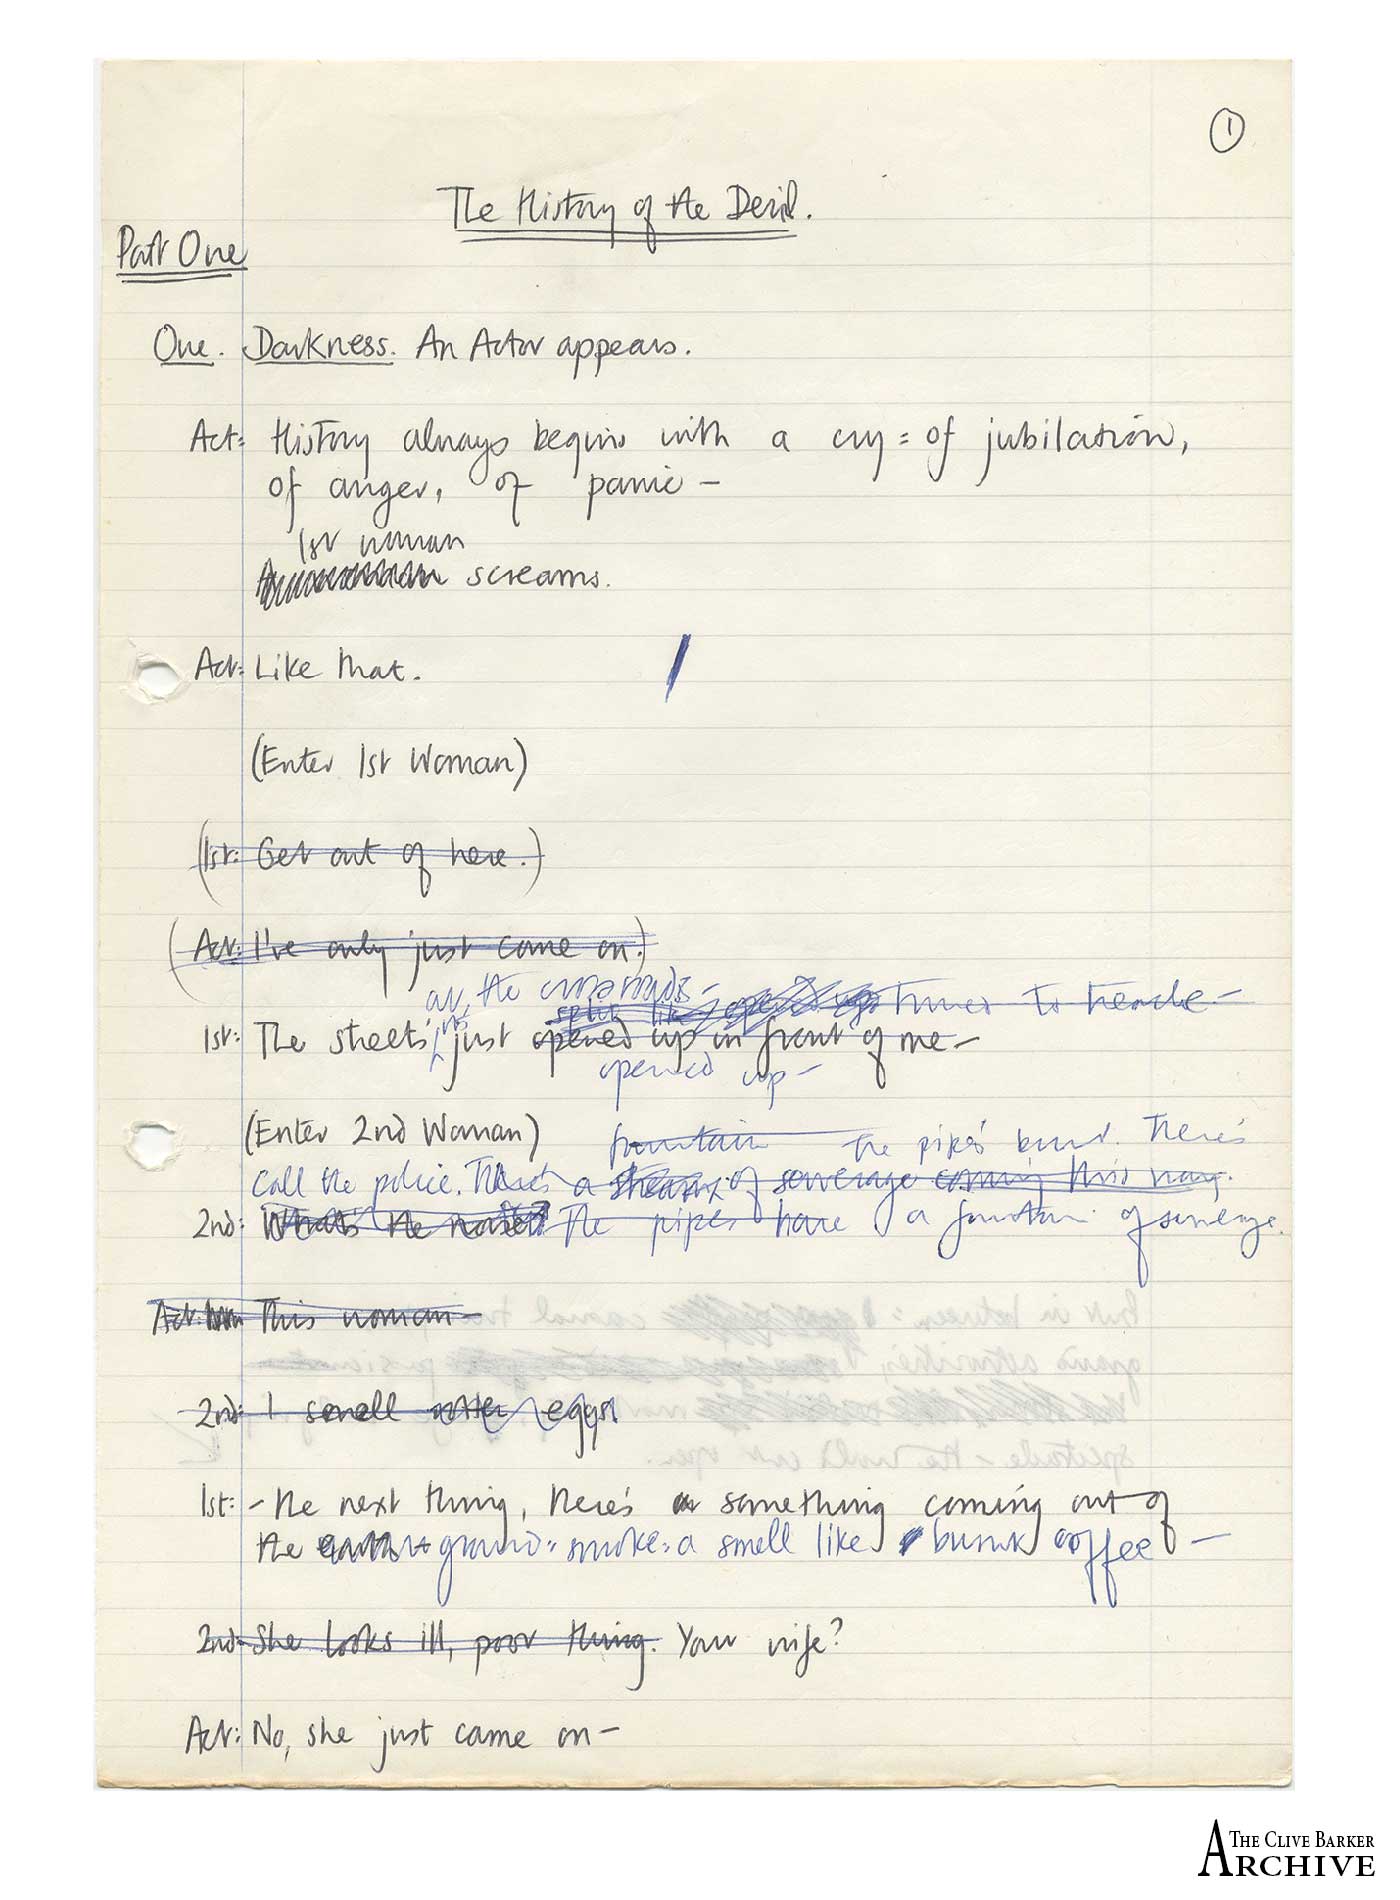 1
The History of the Devil.
Part One
One. Darkness. An Actor appears.
Act: History always begins with a cry: of jubilation,
of anger, of panic –
1st woman
screams.
Act: Like that.
(Enter 1st Woman)
(1st: Get out of here.)
(Act: I've only just come on.)
at the crossroads –
split like opened up turned to treacle –
1st: The streets just opened up in front of me –
opened up –
(Enter 2nd Woman)
fountain the pipes burst. There's
Call the police. There's a stream of sewerage coming this way.
2nd: What's the noise? The pipes have a fountain of sewerage.
Act: This woman –
2nd: I smell rotten eggs!
1st: – the next thing, there's something coming out of
the earth ground: smoke: a smell like burnt coffee –
2nd: She looks ill, poor thing. Your wife?
Act: No, she just came on –
THE CLIVE BARKER
ARCHIVE